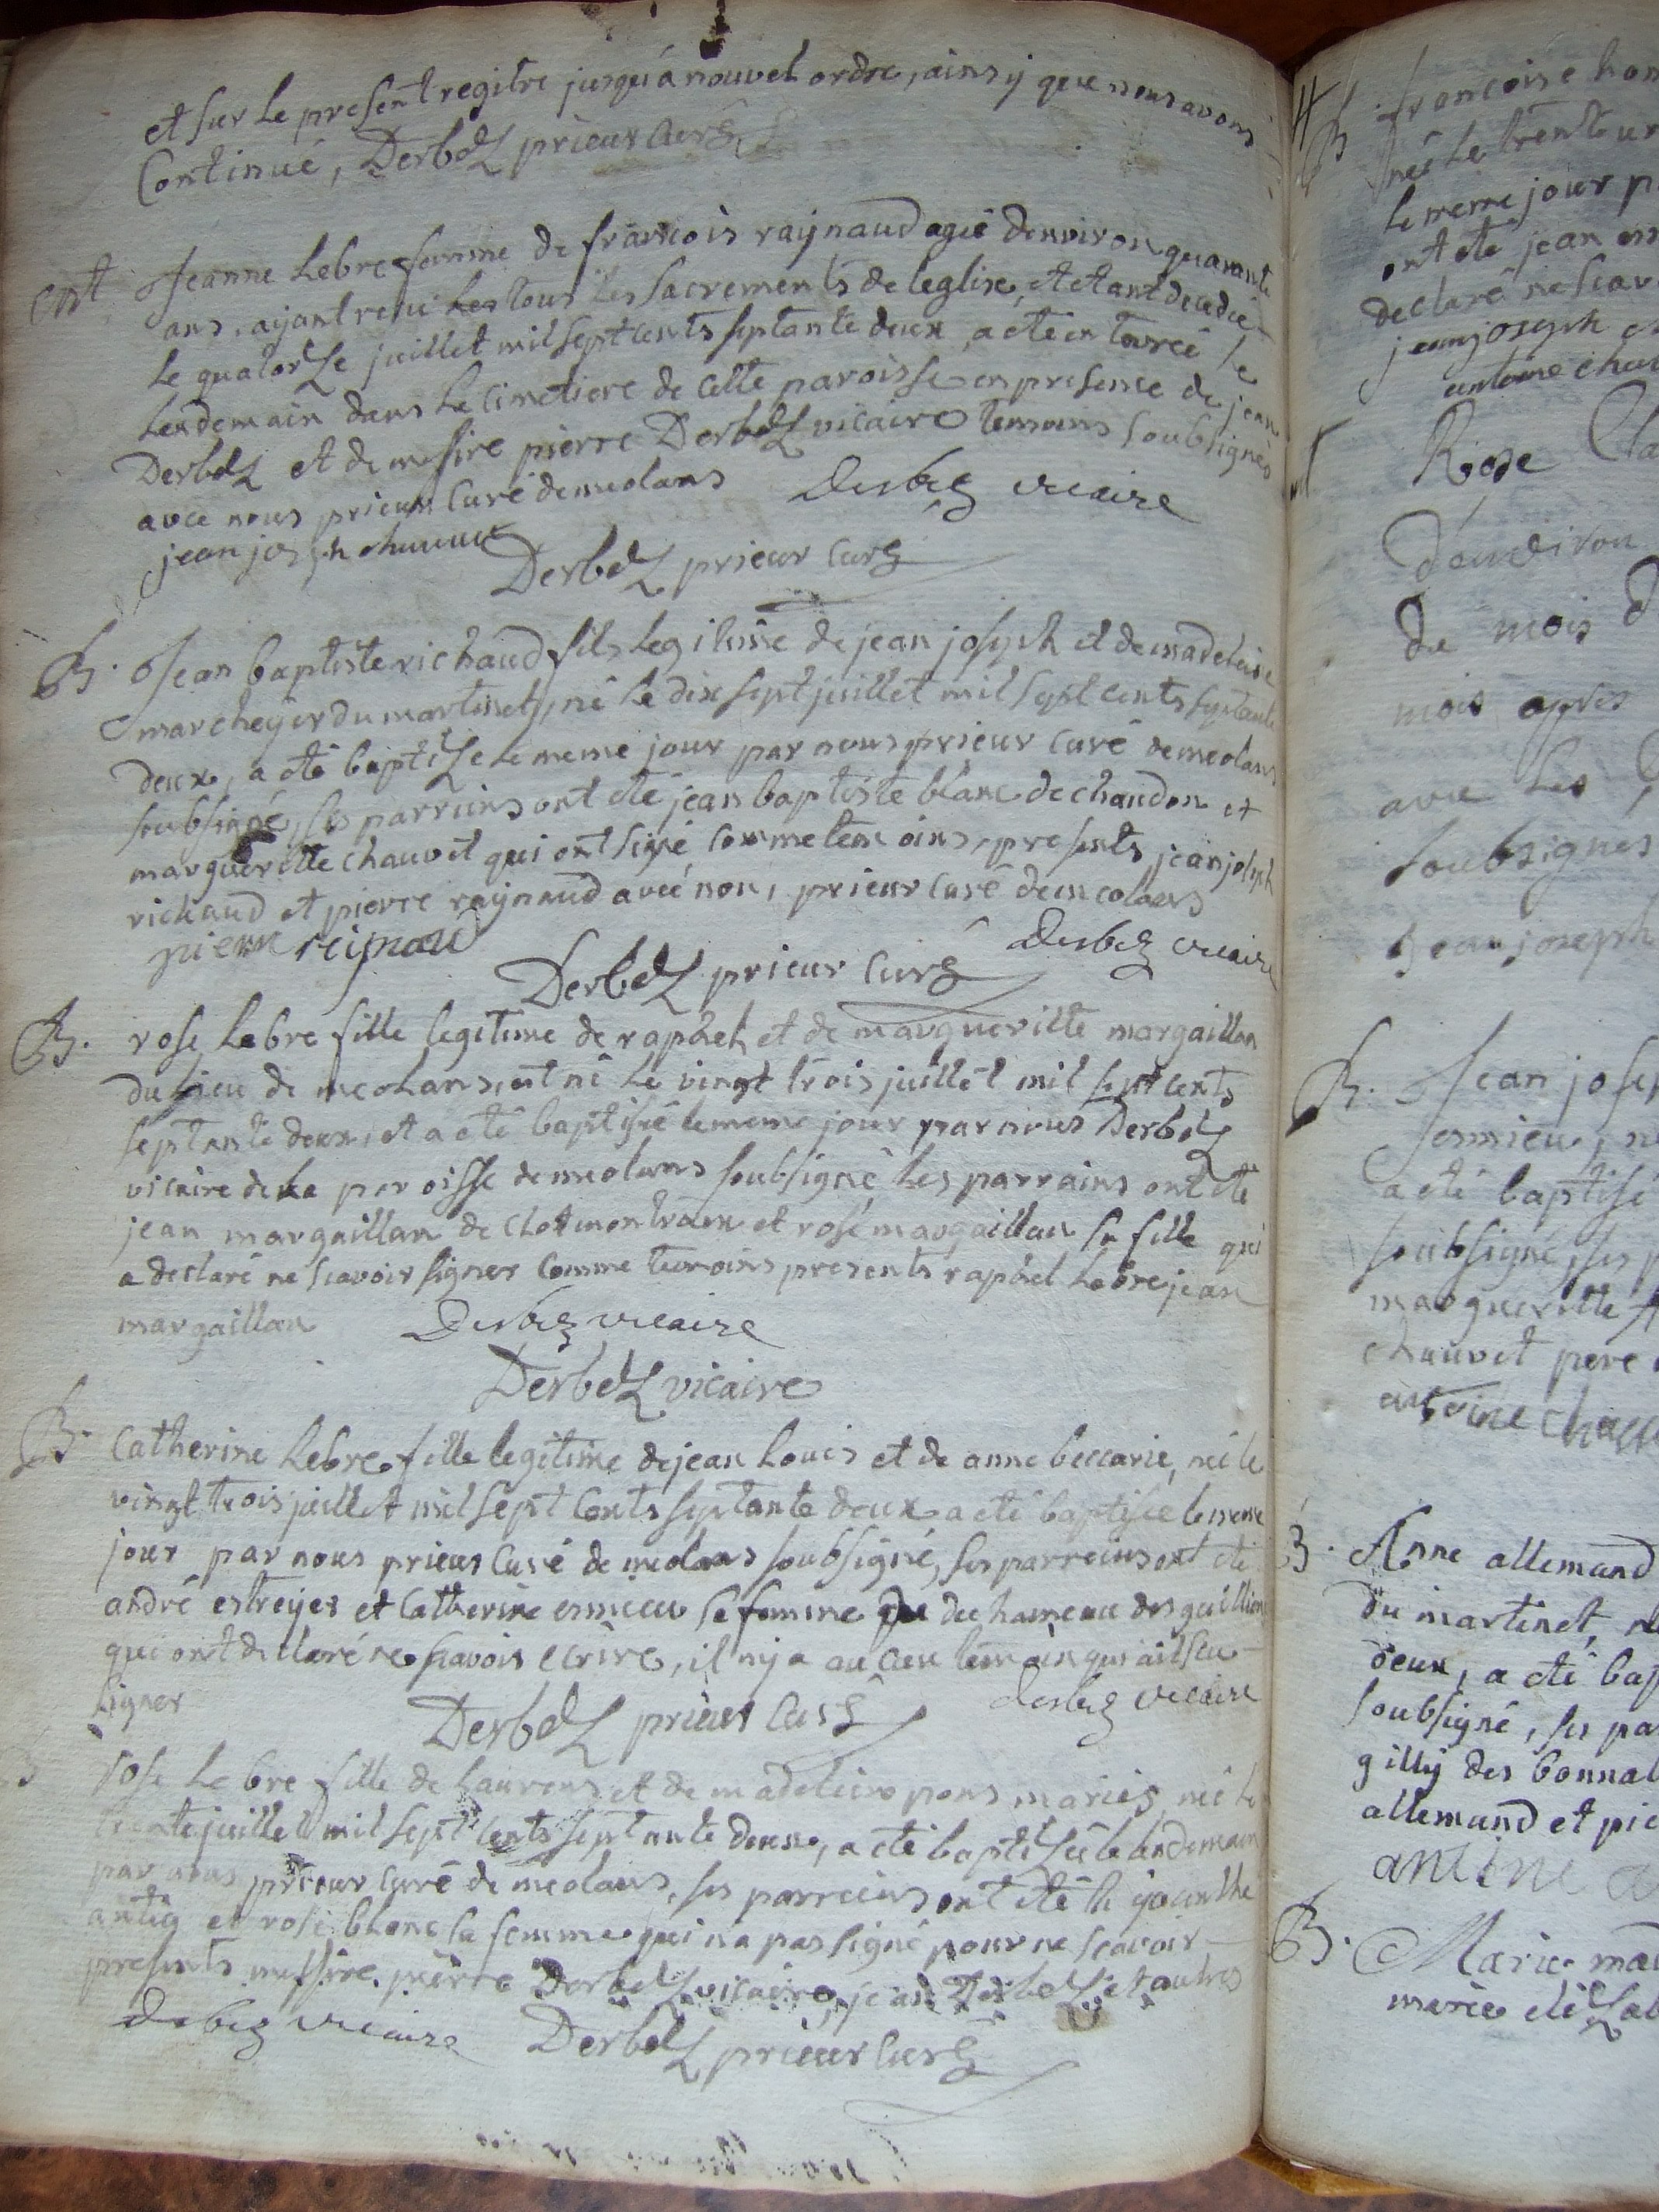 et sur le present regitre jusqu'á nouvel ordre, ainsy que nous avons
Continué, Derbez prieur curé
ent. Jeanne Lebre femme de francois raynaud agée denviron quarante
ans, ayant recu les tous les sacrements de leglise, et etant decedée
le quatorze juillet mil sept cents septante deux, a été enterrée le
Lendemain dans le cimetiere de cette paroisse en presence de jean
Derbez et de messire pierre Derbez vicaire temoins soubsignés
avec nous prieur curé de meolans Derbez vicaire
jean joseph
Derbez prieur curé
B. Jean baptiste richaud fils legitime de jean joseph et de madeleine
marcheyer du martinet, né le dix sept juillet mil sept cents septante
deux, a eté baptizé le meme jour par nous prieur curé de meolans
soubsigné, ses parreins ont eté jean baptiste blanc de chaudon et
margueritte chauvet qui ont signé comme temoins, presents jean joseph
richaud et pierre raynaud avec nous prieur curé de meolans
pierre reignau Derbez vicaire
Derbez prieur curé
B. rose Lebre fille legitime de raphel et de margueritte margaillan
du lieu de meolans, est né le vingt trois juillet mil sept cents
septante deux, et a eté baptisée le meme jour par nous Derbez
vicaire de la paroisse de meolans soubsigné les parrains ont eté
jean margaillan de et rose margaillan sa fille qui
a declaré ne scavoir signer comme temoins presents raphel Lebre jean
margaillan Derbez vicaire
Derbez vicaire
B. Catherine Lebre fille legitime de jean Louis et de anne beccarie, née le
vingt trois juillet mil sept cents septante deux a eté baptisée le meme
jour par nous prieur curé de meolans soubsigné, ses parreins ont eté
andré estreyer et Catherine esmieu sa femme du hameau des
qui ont declaré ne scavoir ecrire, il ny a aucun temoin qui ait scu
signer Derbez prieur curé Derbez vicaire
rose Lebre fille de Laurens et de madeleine pons mariés, née le
trente juillet mil sept cents septante deux, a eté baptizée le lendemain
par nous prieur curé de meolans, ses parreins ont eté hyacinthe
et rose blanc sa femme qui na pas signé pour ne scavoir
presents messire pierre Derbez vicaire, jean Derbez et autres
Derbez vicaire Derbez prieur curé
B. francoise
née le trente un
le meme jour
ont eté jean
declaré ne scav
jean joseph
antoine
Rose
D'environ
De mois
mois apres
avec les
soubsignés
Jean joseph
B. Jean
esmieu,
a eté baptisé
soubsigné, ses
marguerite
chauvet pere
antoine
B. Anne allemand
du martinet,
deux, a eté
soubsigné, ses
gilly des
allemand et
B. Marie
marie